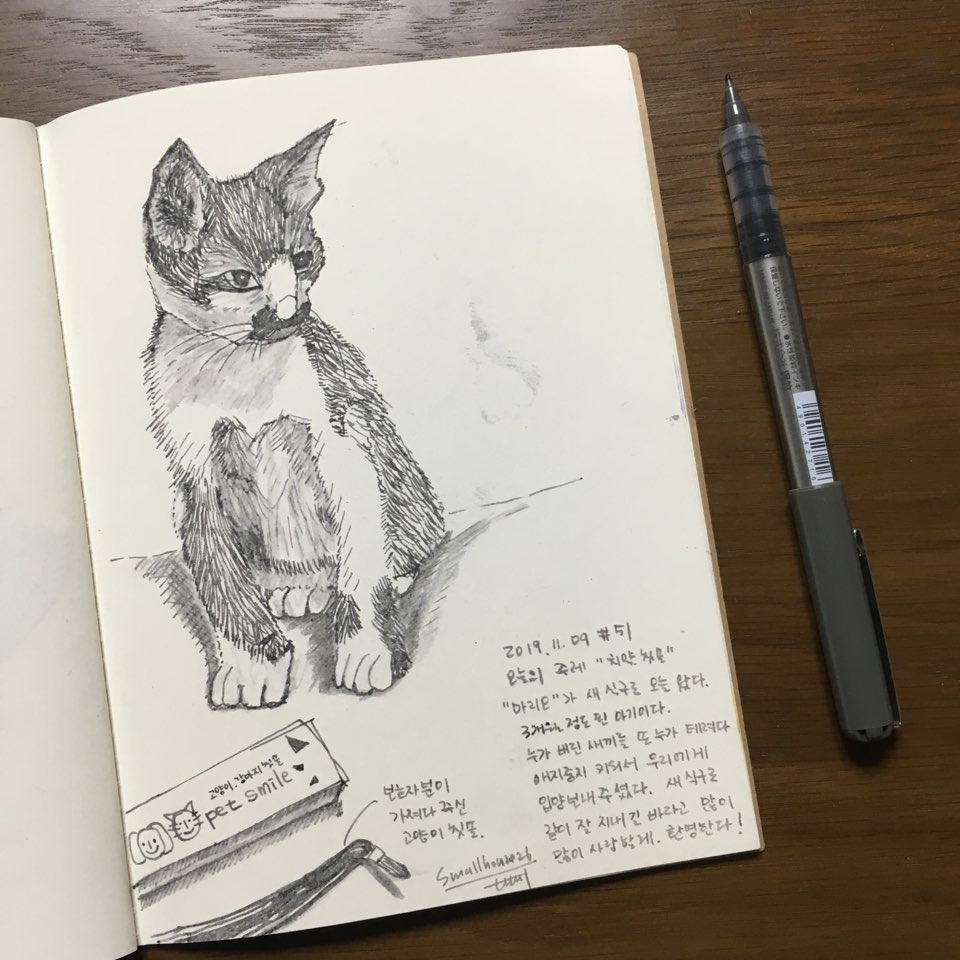 2019.11.09 #51
오늘의 주제 "치약 칫솔"
"마리오"가 새 식구로 오늘 왔다.
3개월 정도 된 아기이다.
누가 버린 새끼를 또 누가 데려다
애지중지 키워서 우리에게
입양보내 주셨다. 새 식구로
같이 잘 지내길 바라고 많이
많이 사랑할게. 환영한다!
고양이.강아지 칫솔
pet smile
가져다 주신
고양이 칫솔.
Smallhouse26